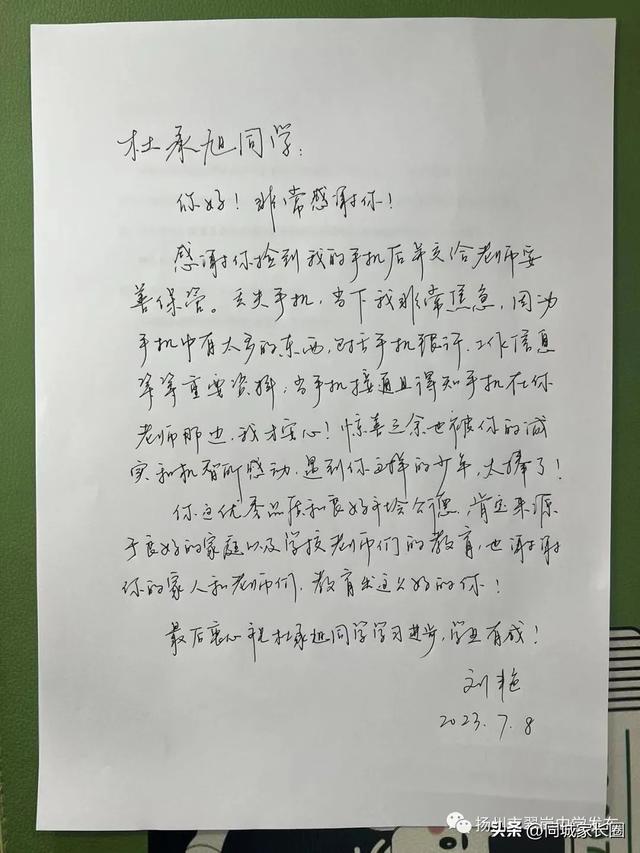 杜承旭同学：
你好！非常感谢你！
感谢你捡到我的手机后并交给老师妥
善保管。丢失手机，当下我非常焦急，因为
手机中有太多的东西，包含手机银行、工作信息
等等重要资料，当手机接通且得知手机在你
老师那边，我才安心！惊喜之余也被你的诚
实和机智所感动，遇到你这样的少年，太棒了！
你这优秀品质和良好社会公德，肯定来源
于良好的家庭以及学校老师们的教育，也谢谢
你的家人和老师们，教育出这么好的你！
最后衷心祝杜承旭同学学习进步，学业有成！
刘艳
2023.7.8
扬州市翠岗中学发布
头条 @同城家长圈